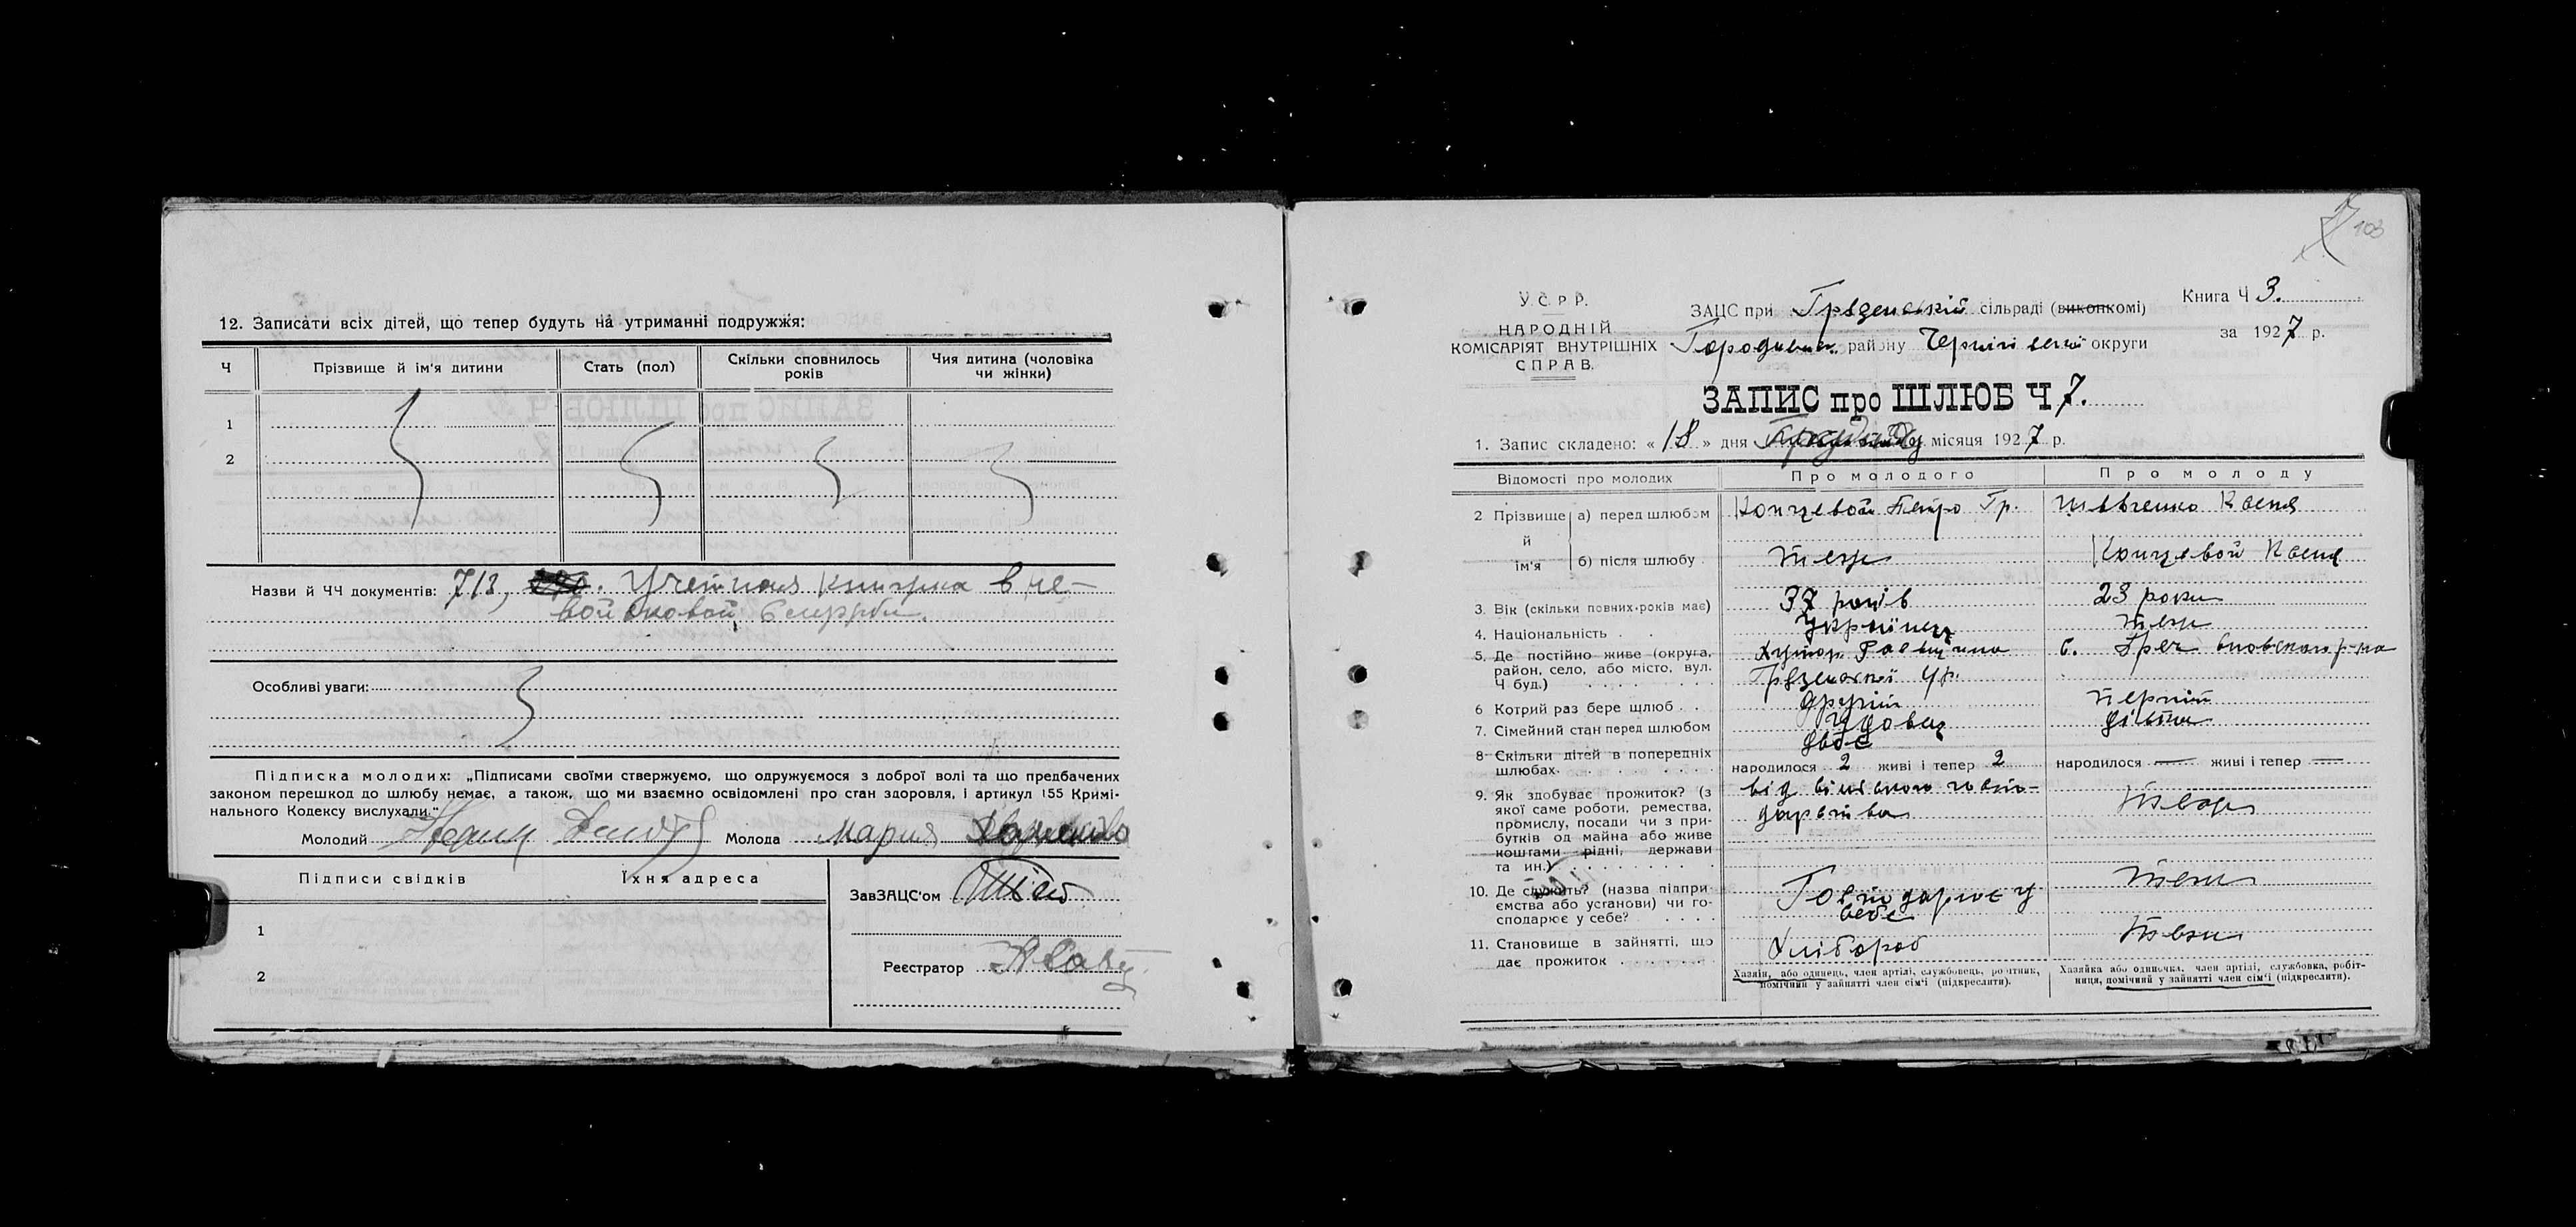 12. Записати всіх дітей, що тепер будуть на утриманні подружжя:
Ч
Прізвище й ім'я дитини
Стать (пол)
Скільки сповнилось років
Чия дитина (чоловіка чи жінки)
1
2
Назви й ЧЧ документів: 713, Учетная книжка в не-
войсковой
Особливі уваги:
Підписка молодих: „Підписами своїми стверджуємо, що одружуємося з доброї волі та що предбачених
законом перешкод до шлюбу немає, а також, що ми взаємно освідомлені про стан здоровля, і артикул 155 Кримі-
нального Кодексу вислухали."
Молодий
Молода Мария
Підписи свідків
Їхня адреса
1
2
ЗавЗАЦС'ом
Реєстратор
103
У.С.Р.Р.
НАРОДНІЙ
КОМІСАРІЯТ ВНУТРІШНІХ
СПРАВ.
ЗАЦС при сільраді (виконкомі)
району Чернігівської округи
Книга Ч 3.
за 1927 р.
ЗАПИС про ШЛЮБ Ч 7.
1. Запис складено: « 18 » дня місяця 1927 р.
Відомості про молодих
Про молодого
Про молоду
2 Прізвище й ім'я
а) перед шлюбом
Концевой Петро Гр.
Шевченко Ксеня
б) після шлюбу
теж
Концевой Ксеня
3. Вік (скільки повних років має)
37 років
23 роки
4. Національність
Українец
теж
5. Де постійно живе (округа,
район, село, або місто, вул.
Ч буд.)
хутор
с.
6 Котрий раз бере шлюб
другий
перший
7. Сімейний стан перед шлюбом
Удовец
8 Скільки дітей в попередніх
шлюбах
двоє
народилося 2 живі і тепер 2
народилося — живі і тепер —
9. Як здобуває прожиток? (з
якої саме роботи, ремества,
промислу, посади чи з при-
бутків од майна або живе
коштами рідні, держави
та ин.)
від сільского госпо-
дарства
теж
10. Де служить? (назва підпри-
ємства або установи) чи го-
сподарює у себе?
Господарює у
себе
теж
11. Становище в зайнятті, що
дає прожиток
Хлібороб
теж
Хазяїн, або одинець, член артілі, службовець, робітник,
помічний у зайнятті член сім'ї (підкреслити).
Хазяйка або одиначка, член артілі, службовка, робіт-
ниця, помічний у зайнятті член сім'ї (підкреслити).